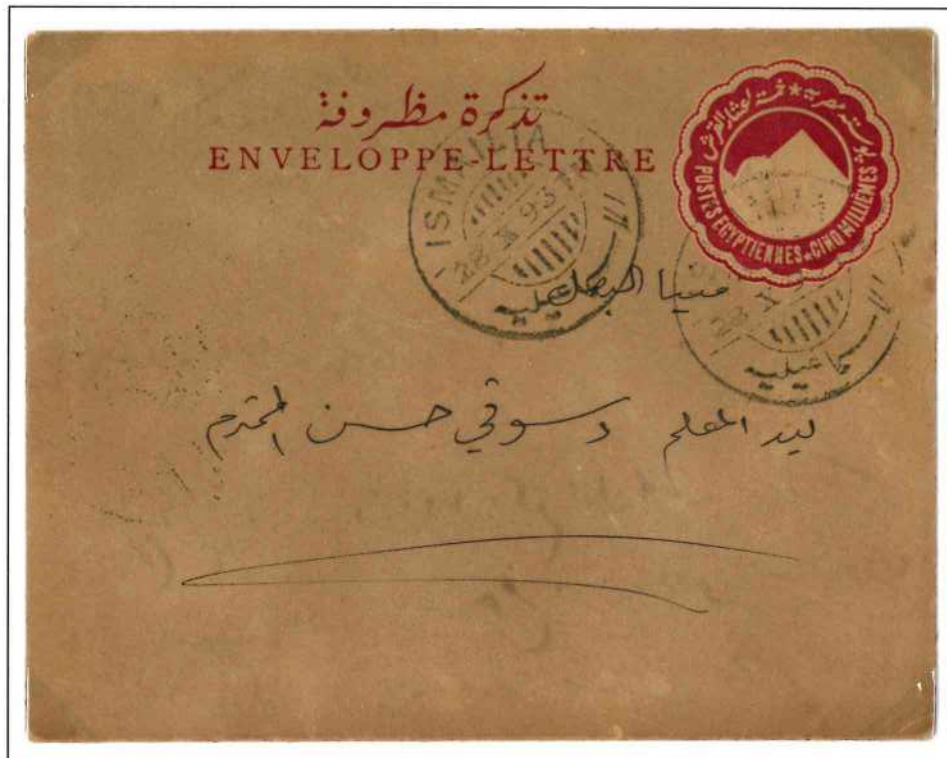 تذكرة مظروفة
ENVELOPPE-LETTRE
بوسته مصرية * خمسة اعشار القرش
POSTES EGYPTIENNES * CINQ MILLIÈMES
ISMAILIA
28 X 93
اسماعيليه
28 X
اسماعيليه
مينا البصل
ليد المعلم دسوقي حسن المحترم